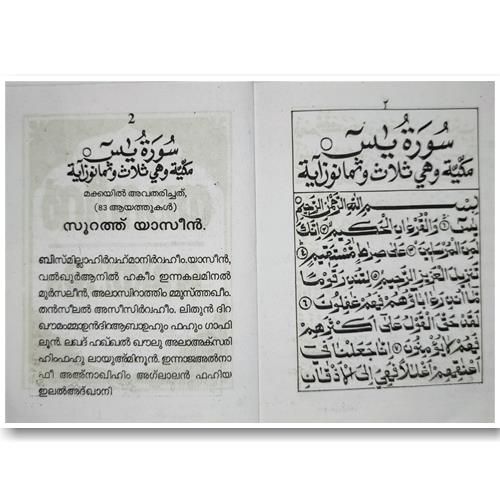 2
سُورَةُ يٰسٓ
مكيّة وهي ثلاث وثمانون آية
മക്കയിൽ അവതരിച്ചത്,
(83 ആയത്തുകൾ)
സൂറത്ത് യാസീൻ.
ബിസ്മില്ലാഹിർറഹ്മാനിർറഹീം.യാസീൻ,
വൽഖുർആനിൽ ഹകീം ഇന്നകലമിനൽ
മുർസലീൻ, അലാസ്വിറാത്വിം മ്മുസ്തഖീം.
തൻസീലൽ അസീസിർറഹീം. ലിതുൻ ദിറ
ഖൗമമ്മാഉൻദിറആബാഉഹും ഫഹും ഗാഫി
ലൂൻ. ലഖദ് ഹഖ്ഖൽ ഖൗലു അലാഅക്സരി
ഹിംഫഹു ലായുഅ്മിനൂൻ. ഇന്നാജഅൽനാ
ഫീ അഅ്നാഖിഹിം അഗ്‌ലാലൻ ഫഹിയ
ഇലൽഅദ്ഖാനി
٢
سُورَةُ يٰسٓ
مكيّة وهي ثلاث وثمانون آية
بِسْمِ اللهِ الرَّحْمٰنِ الرَّحِيمِ
يٰسٓ ۝ وَالْقُرْءَانِ الْحَكِيمِ ۝ اِنَّكَ
لَمِنَ الْمُرْسَلِينَ ۝ عَلٰى صِرَاطٍ مُّسْتَقِيمٍ ۝
تَنْزِيلَ الْعَزِيزِ الرَّحِيمِ ۝ لِتُنْذِرَ قَوْمًا
مَّا اُنْذِرَ ءَابَاؤُهُمْ فَهُمْ غٰفِلُونَ ۝
لَقَدْ حَقَّ الْقَوْلُ عَلٰى اَكْثَرِهِمْ
فَهُمْ لَا يُؤْمِنُونَ ۝ اِنَّا جَعَلْنَا فِي
اَعْنٰقِهِمْ اَغْلٰلًا فَهِيَ اِلَى الْاَذْقَانِ